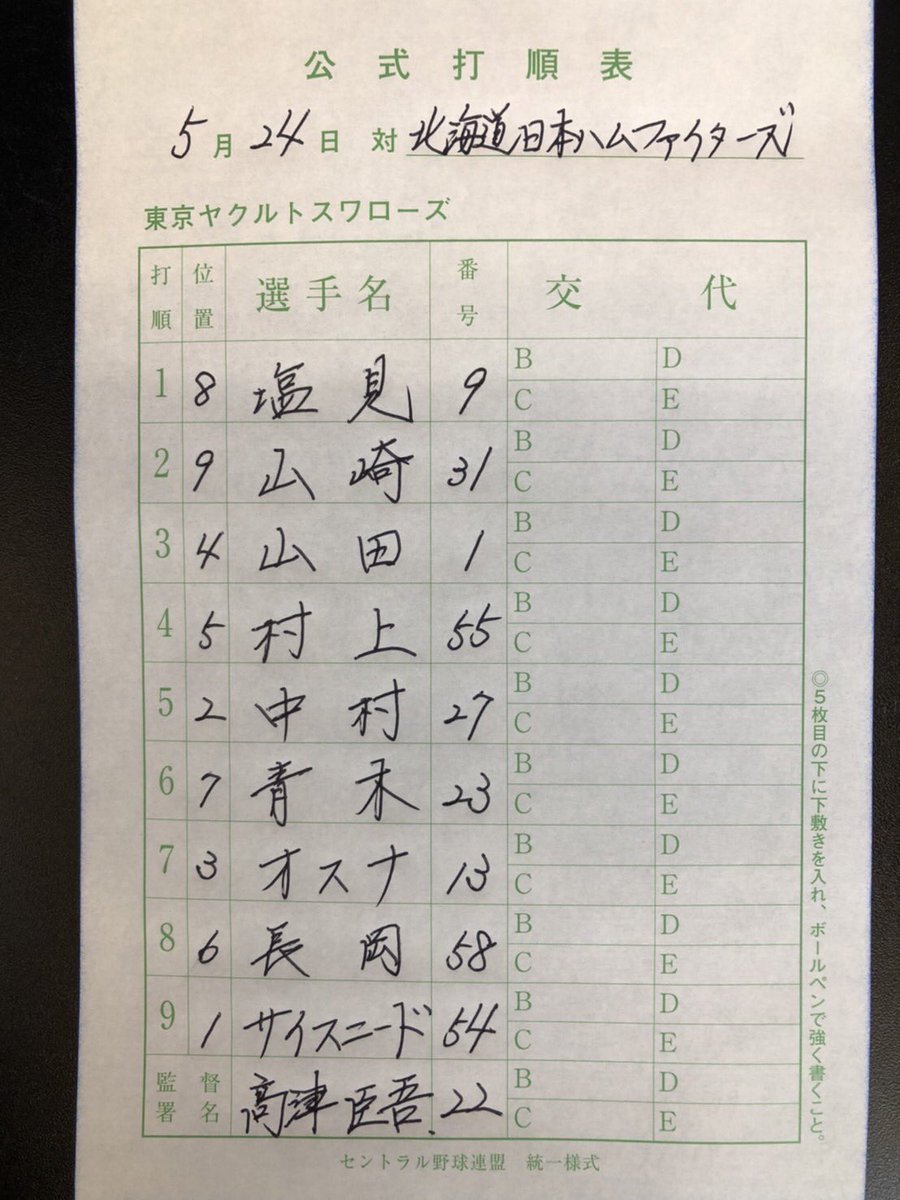 公式打順表
5月24日 対 北海道日本ハムファイターズ
東京ヤクルトスワローズ
打順 位置 選手名 番号 交代
1 8 塩見 9 B D C E
2 9 山崎 31 B D C E
3 4 山田 1 B D C E
4 5 村上 55 B D C E
5 2 中村 27 B D C E
6 7 青木 23 B D C E
7 3 オスナ 13 B D C E
8 6 長岡 58 B D C E
9 1 サイスニード 54 B D C E
監督署名 高津臣吾 22 B D C E
◎5枚目の下に下敷きを入れ、ボールペンで強く書くこと。
セントラル野球連盟 統一様式